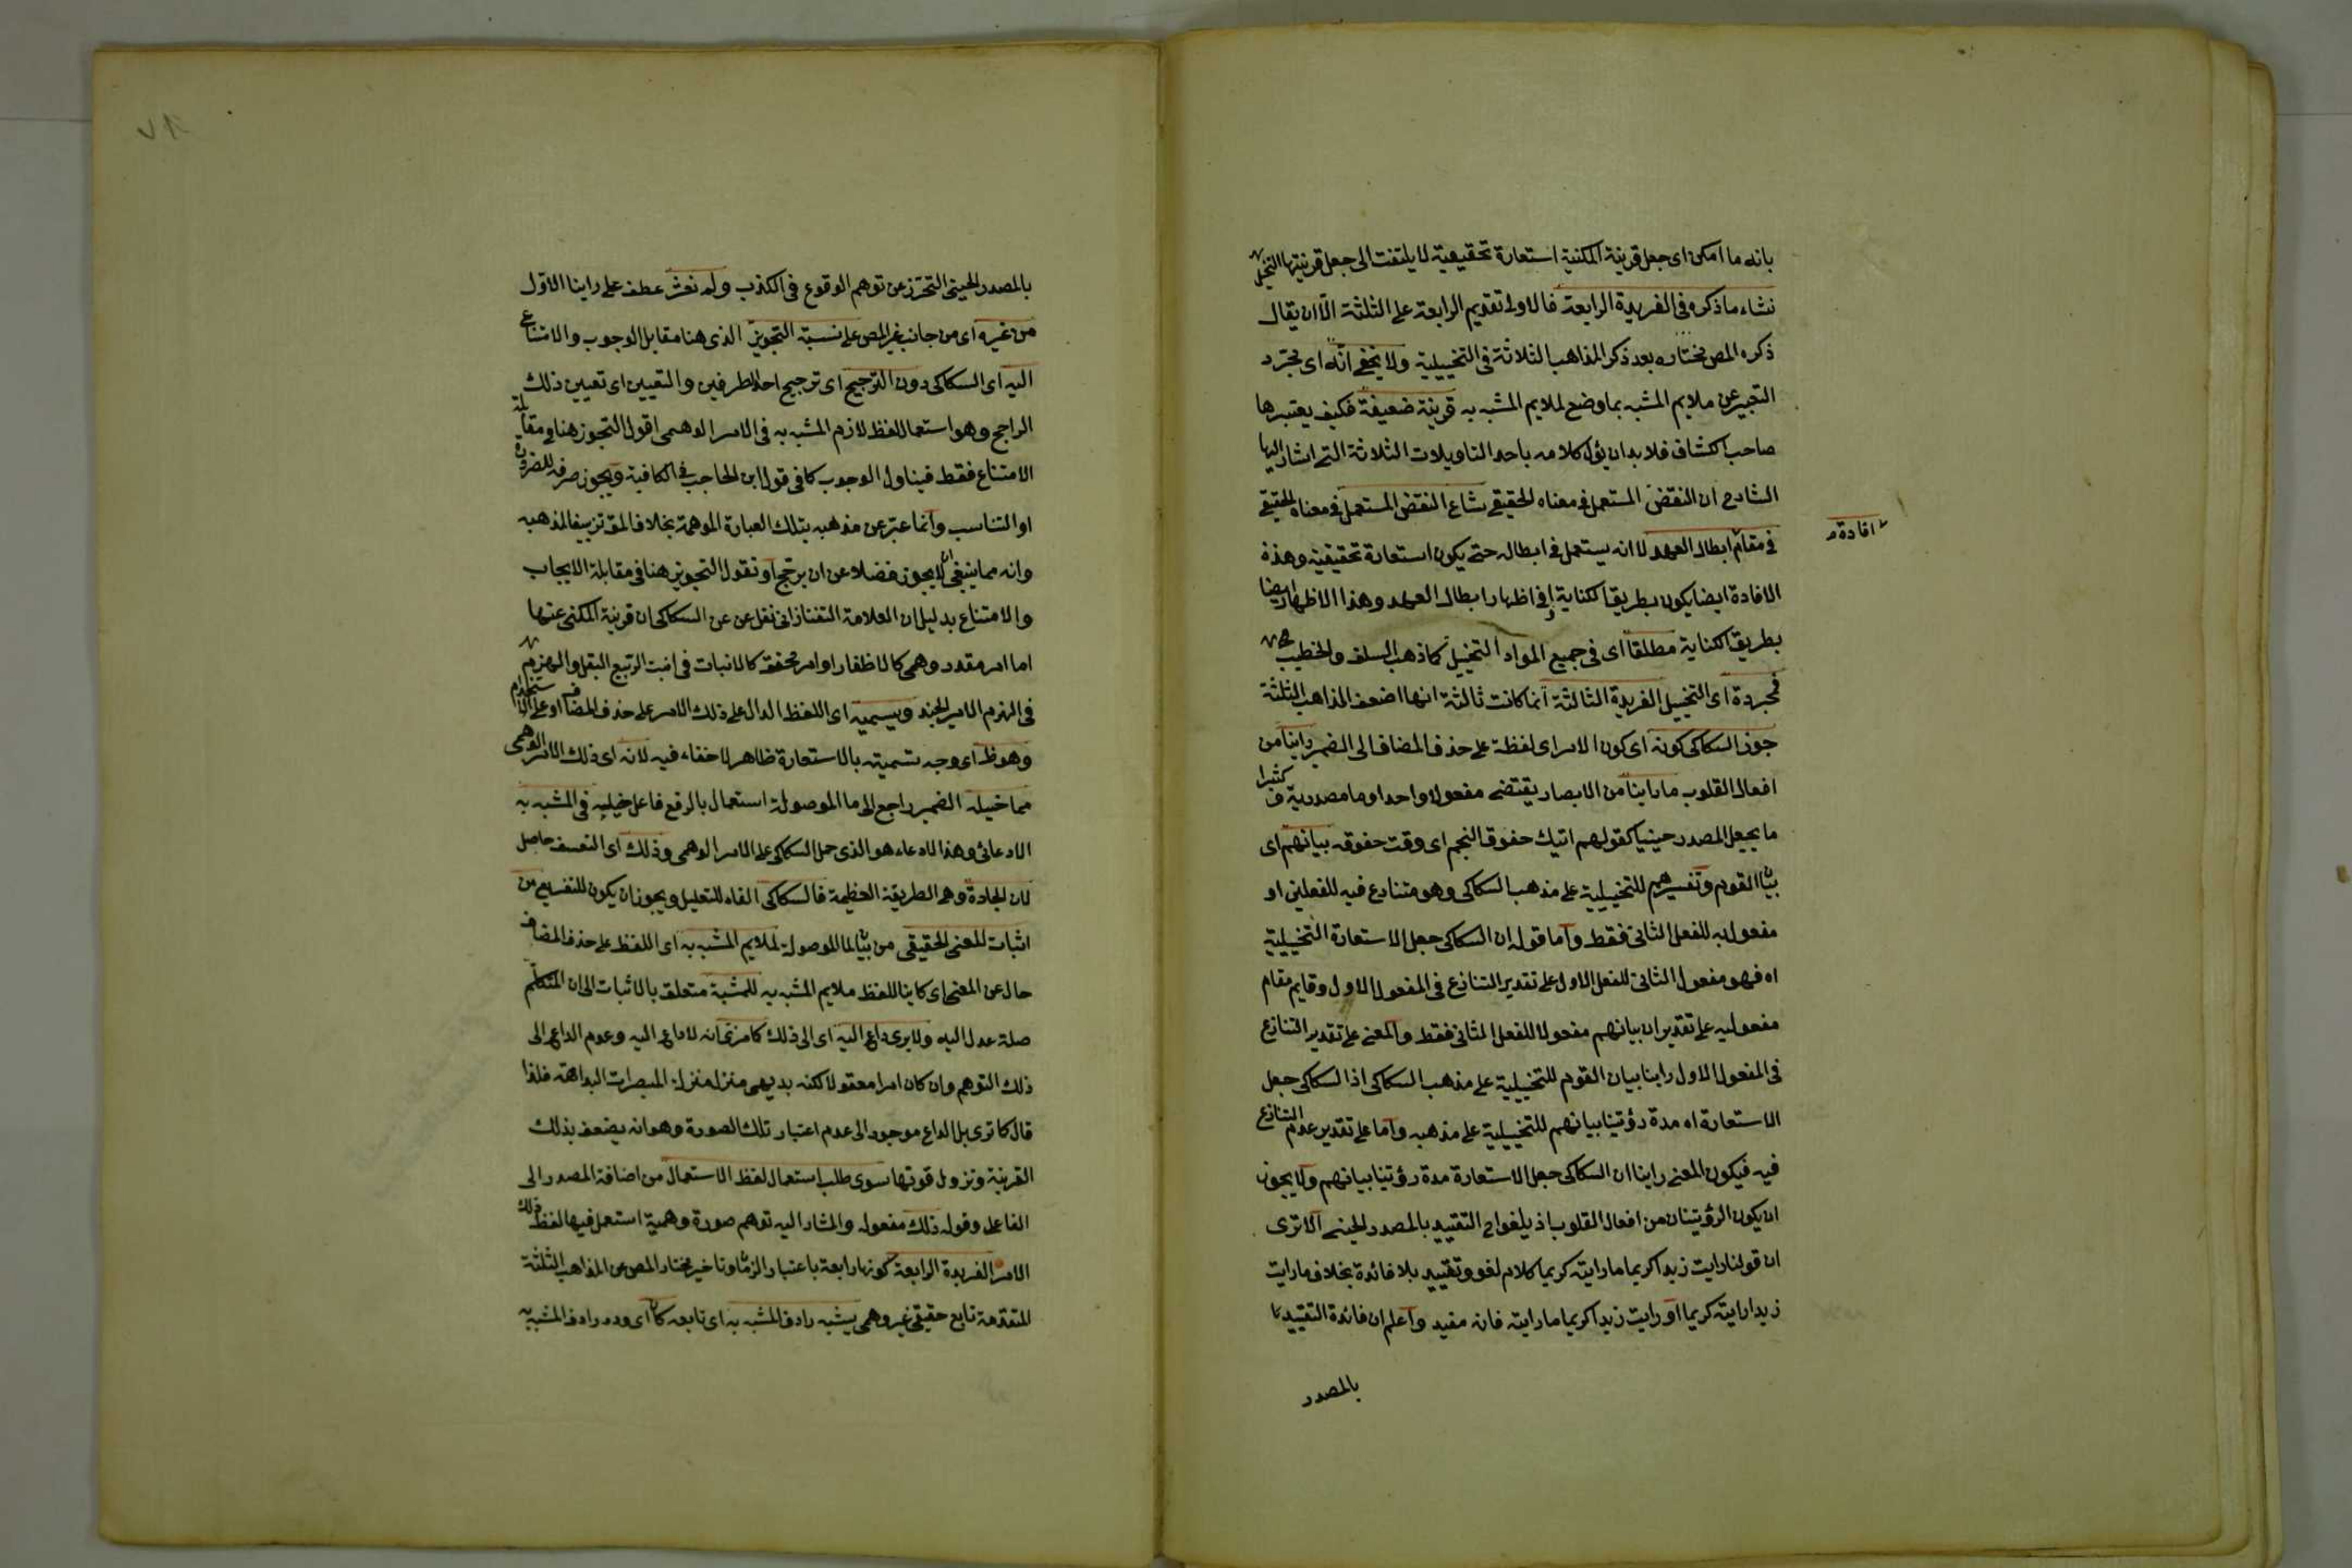 بانه ما امكن اى جعل قرينة المكنية استعارة تحقيقية لا يلتفت الى جعل قرينتها التخيل
نشاء ما ذكره فى الفريدة الرابعة فالاولى تقديم الرابعة على الثلثة الا ان يقال
ذكره المص مختاره بعد ذكر المذاهب الثلاثة فى التخييلية ولا يخفى انه اى مجرد
التعبير عن ملايم المشبه بما وضع لملايم المشبه به قرينة ضعيفة فكيف يعتبرها
صاحب الكشاف فلا بد ان يؤل كلامه باحد التاويلات الثلاثة التى اشار اليها
الشارح ان النقض المستعمل فى معناه الحقيقى شاع النقض المستعمل فى معناه الحقيقى
افادة
فى مقام ابطال العهد لا انه يستعمل فى ابطاله حتى يكون استعارة تحقيقية وهذه
الافادة ايضا يكون بطريق الكناية اى فى اظهار ابطال العهد وهذا الاظهار ايضا
بطريق الكناية مطلقا اى فى جميع المواد التخييل كما ذهب السلف والخطيب
مجردة اى التخييل الفريدة الثالثة انما كانت ثالثة انها اضعف المذاهب الثلثة
جوز السكاكى كونه اى كون الامر اى لفظة على حذف المضاف الى الضمير راينا من
افعال القلوب ما راينا من الابصار يقتضى مفعولا واحدا وما مصدرية و كثيرا
ما يجعل المصدر حينيا كقولهم اتيك خفوق النجم اى وقت خفوقه بيانهم اى
بيان القوم وتفسيرهم للتخييلية على مذهب السكاكى وهو متنازع فيه للفعلين او
مفعول به للفعل الثانى فقط واما قوله ان السكاكى جعل الاستعارة التخييلية
اه فهو مفعول الثانى للفعل الاول على تقدير التنازع فى المفعول الاول وقايم مقام
مفعوليه على تقدير ان بيانهم مفعولا للفعل الثانى فقط والمعنى على تقدير التنازع
فى المفعول الاول راينا بيان القوم للتخييلية على مذهب السكاكى اذ السكاكى جعل
الاستعارة اه مدة رؤيتنا بيانهم للتخييلية على مذهبه واما على تقدير عدم التنازع
فيه فيكون المعنى راينا ان السكاكى جعل الاستعارة مدة رؤيتنا بيانهم ولا يجوز
ان يكون الرؤيتان من افعال القلوب اذ يلغو ح التقييد بالمصدر الحينى الا ترى
ان قولنا رايت زيدا كريما ما رايته كريما كلام لغو وتقييد بلا فائدة بخلاف ما رايت
زيدا رايته كريما او رايت زيدا كريما ما رايته فانه مفيد واعلم ان فائدة التقييد
بالمصدر
بالمصدر الحينى التحرز عن توهم الوقوع فى الكذب ولم نعثر عطف على راينا الاول
من غيره اى من جانب غير المص على نسبة التجويز الذى هنا مقابل الوجوب والامتناع
اليه اى السكاكى دون الترجيح اى ترجيح احد الطرفين والتعيين اى تعيين ذلك
الراجح وهو استعمال لفظ لازم المشبه به فى الامر الوهمى اقول التجوز هنا فى مقابلة
الامتناع فقط فيناول الوجوب كما فى قول ابن الحاجب فى الكافية ويجوز صرفه للضرورة
او التناسب وانما عبر عن مذهبه بتلك العبارة الموهمة بخلاف المق تزييفا لمذهبه
وانه مما ينبغى ان لا يجوز فضلا عن ان يرجح او نقول التجويز هنا فى مقابلة الايجاب
والامتناع بدليل ان العلامة التفتازانى نقل عن عن السكاكى ان قرينة المكنى عنها
اما امر مقدر وهمى كالاظفار او امر محقق كالانبات فى انبت الربيع البقل والهزم
فى الهزم الامير الجند ويسميه اى اللفظ الدال على ذلك الامر على حذف المضاف او على الاستخدام
وهو ظ اى وجه تسميته بالاستعارة ظاهر لا خفاء فيه لانه اى ذلك الامر الوهمى
مما خيله الضمير راجع الى ما الموصولة استعمال بالرفع فاعل خيليه فى المشبه به
الادعائى وهذا الادعاء هو الذى حمل السكاكى على الامر الوهمى وذلك اى التعسف حاصل
لان الجادة وهى الطريقة العظيمة فالسكاكى الفاء للتعليل ويجوز ان يكون للتفريع من
اثبات للمعنى الحقيقى من بيان لما الموصولة لملايم المشبه به اى اللفظ على حذف المضاف
حال عن المعنى اى كاينا للفظ ملايم المشبه به للمشبه متعلق بالاثبات الى ان المتكلم
صلة عدل اليه ولا يرى داع اليه اى الى ذلك كما مر لانه لا داع اليه وعدم الداع الى
ذلك التوهم وان كان امرا معقولا لكنه بديهى منزل منزلة المبصرات البداهة فلذا
قال كما ترى بل الداع موجود الى عدم اعتبار تلك الصورة وهو انه يضعف بذلك
القرينة وتزول قوتها سوى طلب استعمال لفظ الاستعمال من اضافة المصدر الى
الفاعل وقوله ذلك مفعوله والمشار اليه توهم صورة وهمية استعمل فيها لفظ ذلك
الامر الفريدة الرابعة كونها رابعة باعتبار الزمان وتاخير مختار المص عن المذاهب الثلثة
المتقدمة تابع حقيقى غير وهمى يشبه رادف المشبه به اى تابعه كان اى وده رادف المشبه به